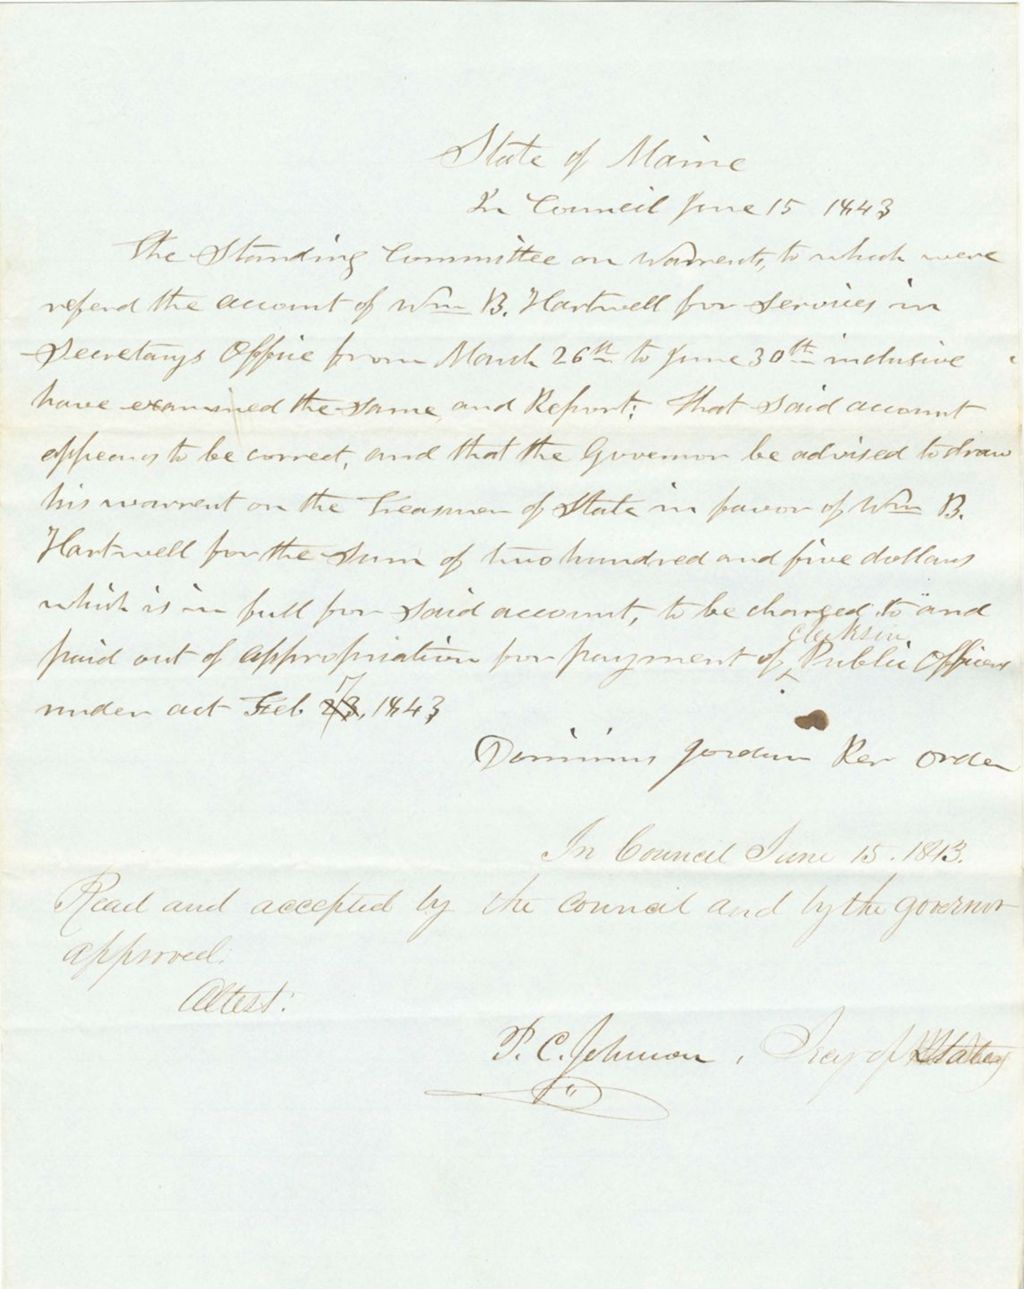 State of Maine
In Council June 15 1843
The Standing Committee on Warrents, to which were
referd the account of Wm B. Hartwell for services in
Secretarys Office from March 26th to June 30th inclusive
have examined the same, and Report: That said account
appears to be correct, and that the Governor be advised to draw
his warrent on the Treasurer of State in favor of Wm B.
Hartwell for the sum of two hundred and five dollars
which is in full for said account, to be charged to and
clerks in
paid out of appropriation for payment of Public Offices
under act Feb. 7, 1843
Dominicus Jordan Per Order
In Council June 15. 1843.
Read and accepted by the council and by the governor
approved.
Attest:
P. C. Johnson, Secy of State